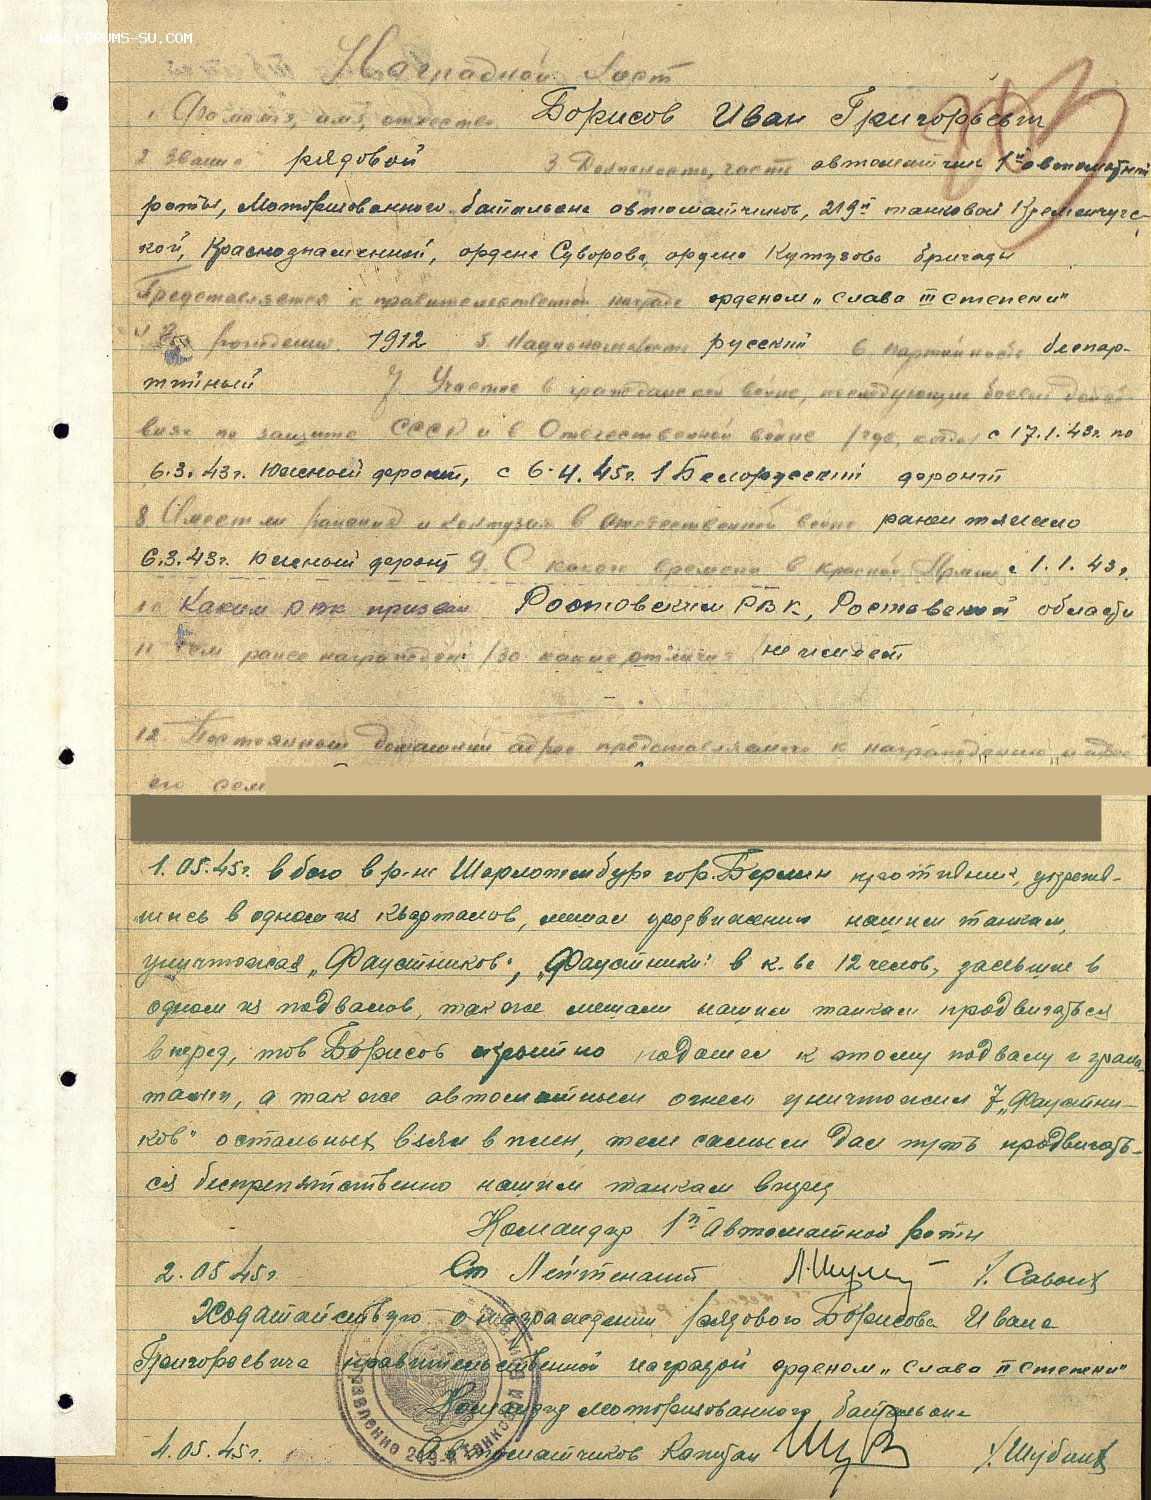 WWW.FORUMS-SU.COM
Наградной Лист
1 Фамилия, имя, отчество Борисов Иван Григорьевич
2 Звание рядовой 3 Должность, часть автоматчик 1й автоматной
роты, Моторизованного батальона автоматчиков, 219й танковой Кременчугс-
кой, Краснознаменной, ордена Суворова, ордена Кутузова бригады
Представляется к правительственной награде орденом „Слава III степени"
4 рождения 1912 5. Национальность русский 6 партийность беспар-
тийный 7 Участие в гражданской войне, последующих боевых действ-
иях по защите СССР и в Отечественной войне /где, когда/ с 17.1.43г. по
6.3.43г. Южный фронт, с 6.4.45г. 1 Белорусский фронт
8 Имеет ли ранения и контузии в отечественной войне ранен тяжело
6.3.43г. Южный фронт 9. С какого времени в красной Армии с 1.1.43г.
10 Каким РВК призван Ростовским РВК, Ростовской области
11 Чем ранее награжден /за какие отличия/ не имеет
12 Постоянный домашний адрес представляемого к награждению и адрес
его сем
1.05.45г. в бою в р-не Шарлотенбург гор. Берлин противник, укрепив-
шись в одном из кварталов, мешал продвижению нашим танкам,
уничтожая „Фаустников", „Фаустники" в к-ве 12 челов, засевшие в
одном из подвалов, также мешали нашим танкам продвигаться
вперед, тов Борисов скрытно подошел к этому подвалу и грана-
тами, а также автоматным огнем уничтожил 7 „Фаустни-
ков" остальных взял в плен, тем самым дал путь продвигать-
ся беспрепятственно нашим танкам вперед
Командир 1й Автоматной роты
2.05.45г. Ст Лейтенант /Савоих/
Ходатайствую о награждении рядового Борисова Ивана
Григорьевича правительственной наградой орденом „Слава II степени"
Командир моторизованного батальона
4.05.45г. Автоматчиков Капитан /Шубин/
Управление 219-й танковой